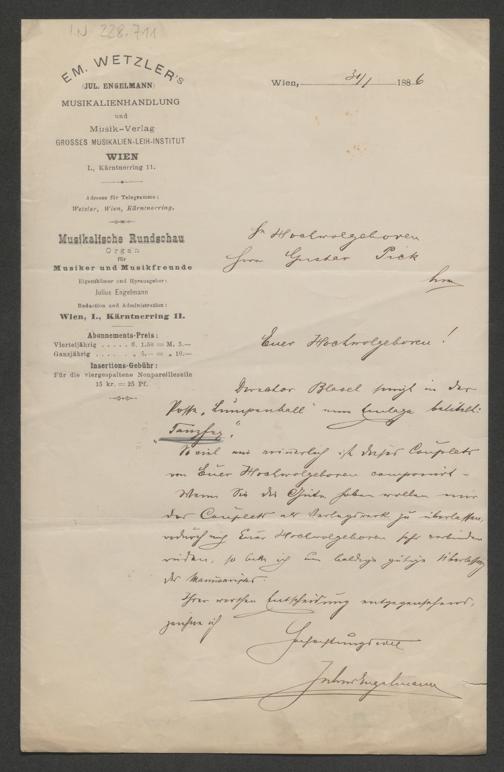 I.N 228.711
EM. WETZLER's
(JUL. ENGELMANN)
MUSIKALIENHANDLUNG
und
Musik-Verlag
GROSSES MUSIKALIEN-LEIH-INSTITUT
WIEN
I., Kärntnerring 11.
Adresse für Telegramme:
Wetzler, Wien, Kärntnerring.
Musikalische Rundschau
Organ
für
Musiker und Musikfreunde
Eigenthümer und Herausgeber:
Julius Engelmann
Redaction und Administration:
Wien, I., Kärntnerring 11.
Abonnements-Preis:
Vierteljährig . . . . fl. 1.50 = M. 3.—
Ganzjährig . . . . . „ 5.— = „ 10.—
Insertions-Gebühr:
Für die viergespaltene Nonpareillezeile
15 kr. = 25 Pf.
Wien, 31/1 1886
Sr Hochwolgeboren
Herrn Gustav Pick
hier
Euer Hochwolgeboren!
Director Blasel singt in der
Posse „Lumpenball" eine Einlage betitelt:
„Tanzfex".
Soviel mir erinnerlich ist dieses Couplet
von Euer Hochwolgeboren componirt –
Wenn Sie die Güte haben wollen mir
das Couplet als Verlagswerk zu überlassen,
wodurch mich Euer Hochwolgeboren sehr verbinden
würden, so bitte ich um baldige gütige Überlassung
des Manuscriptes.
Ihrer werthen Entscheidung entgegensehend,
zeichne ich
Hochachtungsvoll
Julius Engelmann